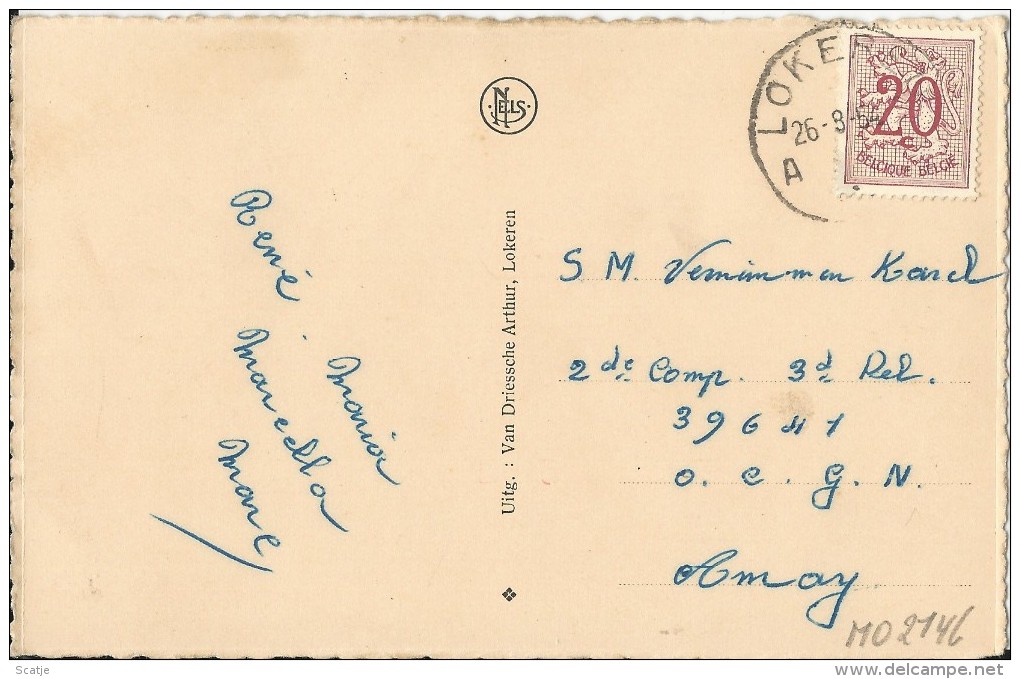 NELS
LOKEREN
26-8-54
A
20
C
BELGIQUE BELGIË
René
Maria
Marcella
Marc
Uitg. : Van Driessche Arthur, Lokeren
S M. Vernimmen Karel
2de Comp. 3d Pel.
39641
O. C. G. N.
Amay
MO2146
Scatje
www.delcampe.net